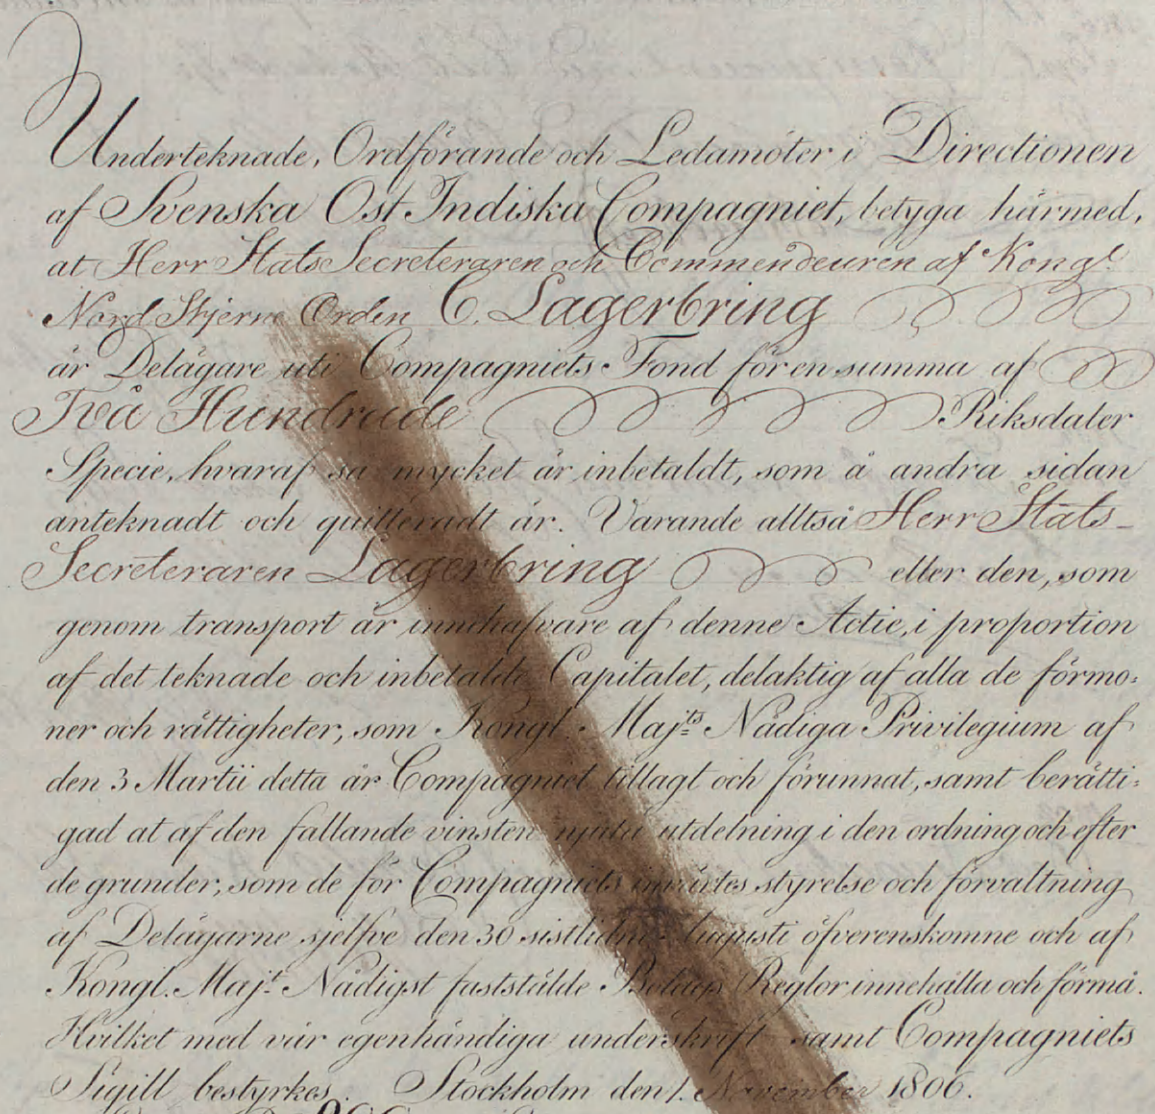 Underteknade, Ordförande och Ledamöter i Directionen
af Svenska Ost Indiska Compagniet, betyga härmed,
at Herr Stats Secreteraren och Commendeuren af Kongl.
Nord Stjerne Orden C. Lagerbring
är Delägare uti Compagniets Fond för en summa af
Två Hundrade Riksdaler
Specie, hvaraf så mycket är inbetaldt, som å andra sidan
anteknadt och quitteradt är. Varande alltså Herr Stats-
Secreteraren Lagerbring eller den, som
genom transport är innehafvare af denne Actie, i proportion
af det teknade och inbetalde Capitalet, delaktig af alla de förmo=
ner och rättigheter, som Kongl. Maj:ts Nådiga Privilegium af
den 3 Martii detta år Compagniet tillagt och förunnat, samt berätti=
gad at af den fallande vinsten njuta utdelning i den ordning och efter
de grunder, som de för Compagniets inwärtes styrelse och förvaltning
af Delägarne sjelfve den 30 sistlidne Augusti öfverenskomne och af
Kongl. Maj:t Nådigst fastställde Bolags Reglor innehålla och förmå.
Hvilket med vår egenhändiga underskrift samt Compagniets
Sigill bestyrkes. Stockholm den 1. November 1806.